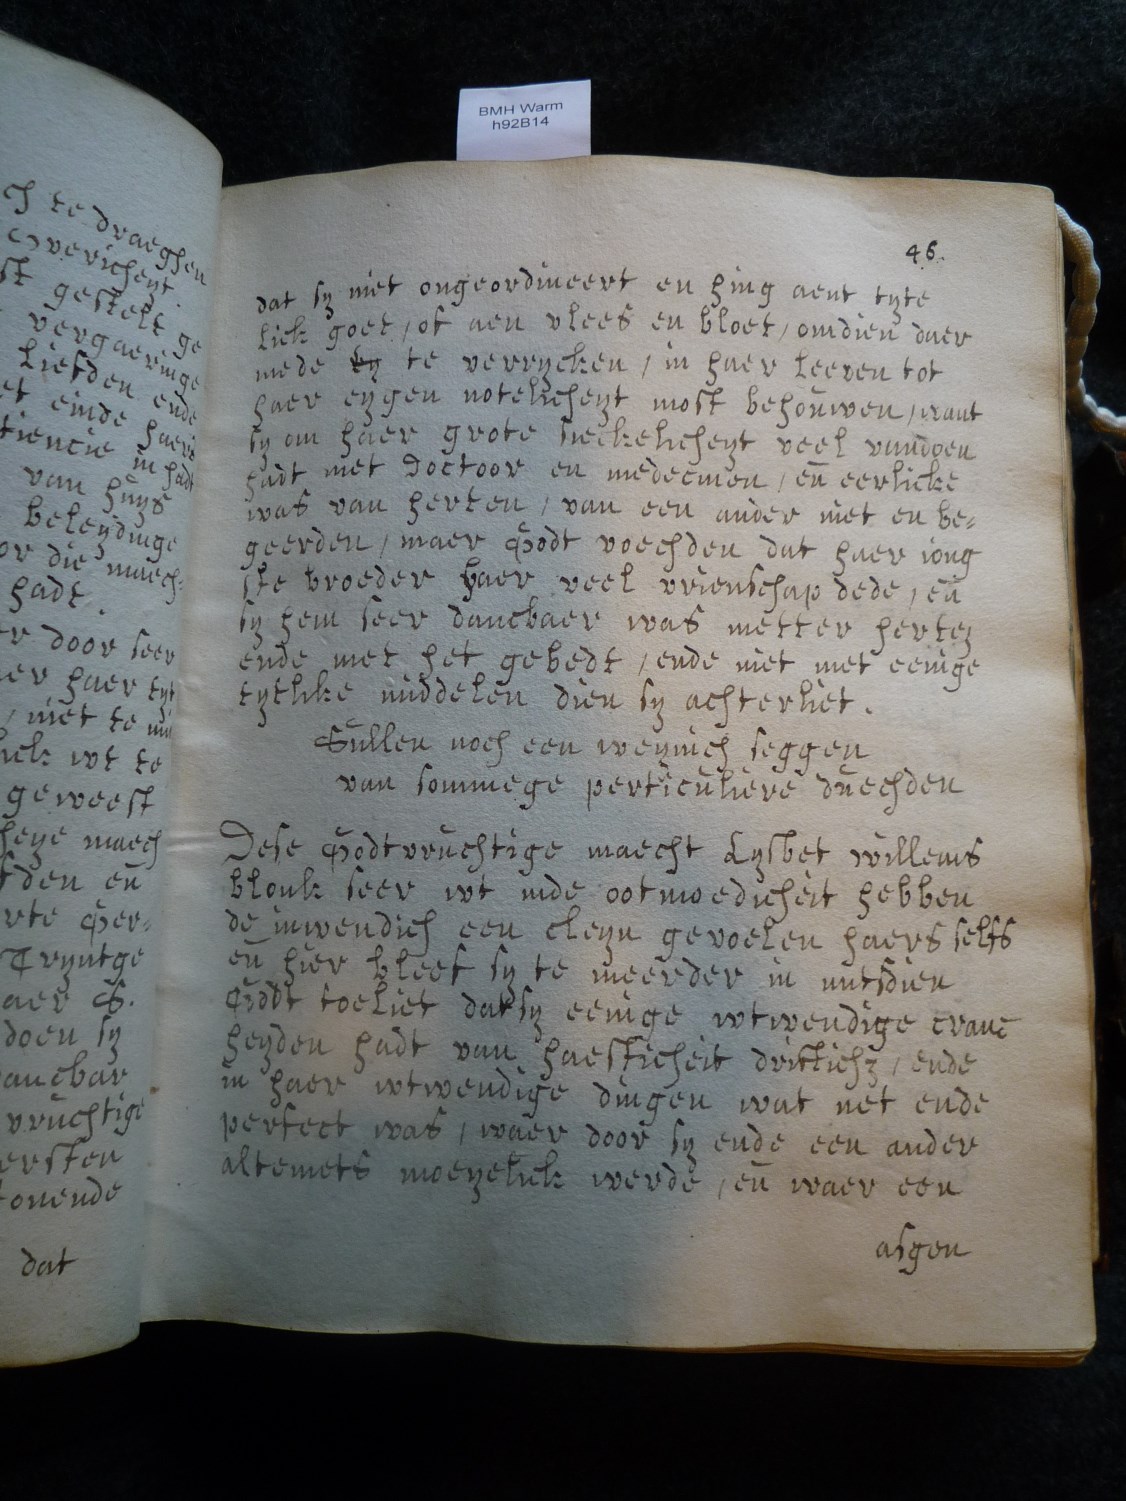 BMH Warm
h92B14
ch te draeghen
st gestelt ge
vergaeringe
liefden ende
et einde haere
tiencie in hadt
van huys
beleydinge
or die maech-
hadt.
er door seer
er haer tyt
, niet te
lick wt te
geweest
heye maech
fden en̄
rte Gser-
Tryntge
aer S.
doen sy
ancbar
vruchtige
ersten
tonende
dat
46.
dat sy niet ongeordineert en hing aent tyte
lick goet, of aen vlees en bloet, omdien daer
mede te verrycken, in haer leeven tot
haer eygen notelicheyt most behouwen, want
sy om haer grote sieckelicheyt veel vandoen
hadt met Doctoor en medecinen, en̄ eerlicke
was van herten, van een ander niet en be-
geerden, maer Godt voechden dat haer iong
ste broeder haer veel vrienschap dede, en̄
sy hem seer danckbaer was metter herten
ende met het gebedt, ende niet met eenige
tytlike middelen dien sy achterliet.
Sullen noch een weynich seggen
van sommege perticuliere duechden
Dese Godtvruchtige maecht Lysbet willems
blonk seer wt inde ootmoedicheit hebben
de inwendich een cleyn gevoelen haers selfs
en̄ hier bleef sy te meerder in mitsdien
Godt toeliet dat sy eenige wtwendige cranc
heyden hadt van haesticheit driftich, ende
in haer wtwendige dingen wat net ende
perfect was, waer door sy ende een ander
altemets moeyelick werde, en̄ waer een
asgen